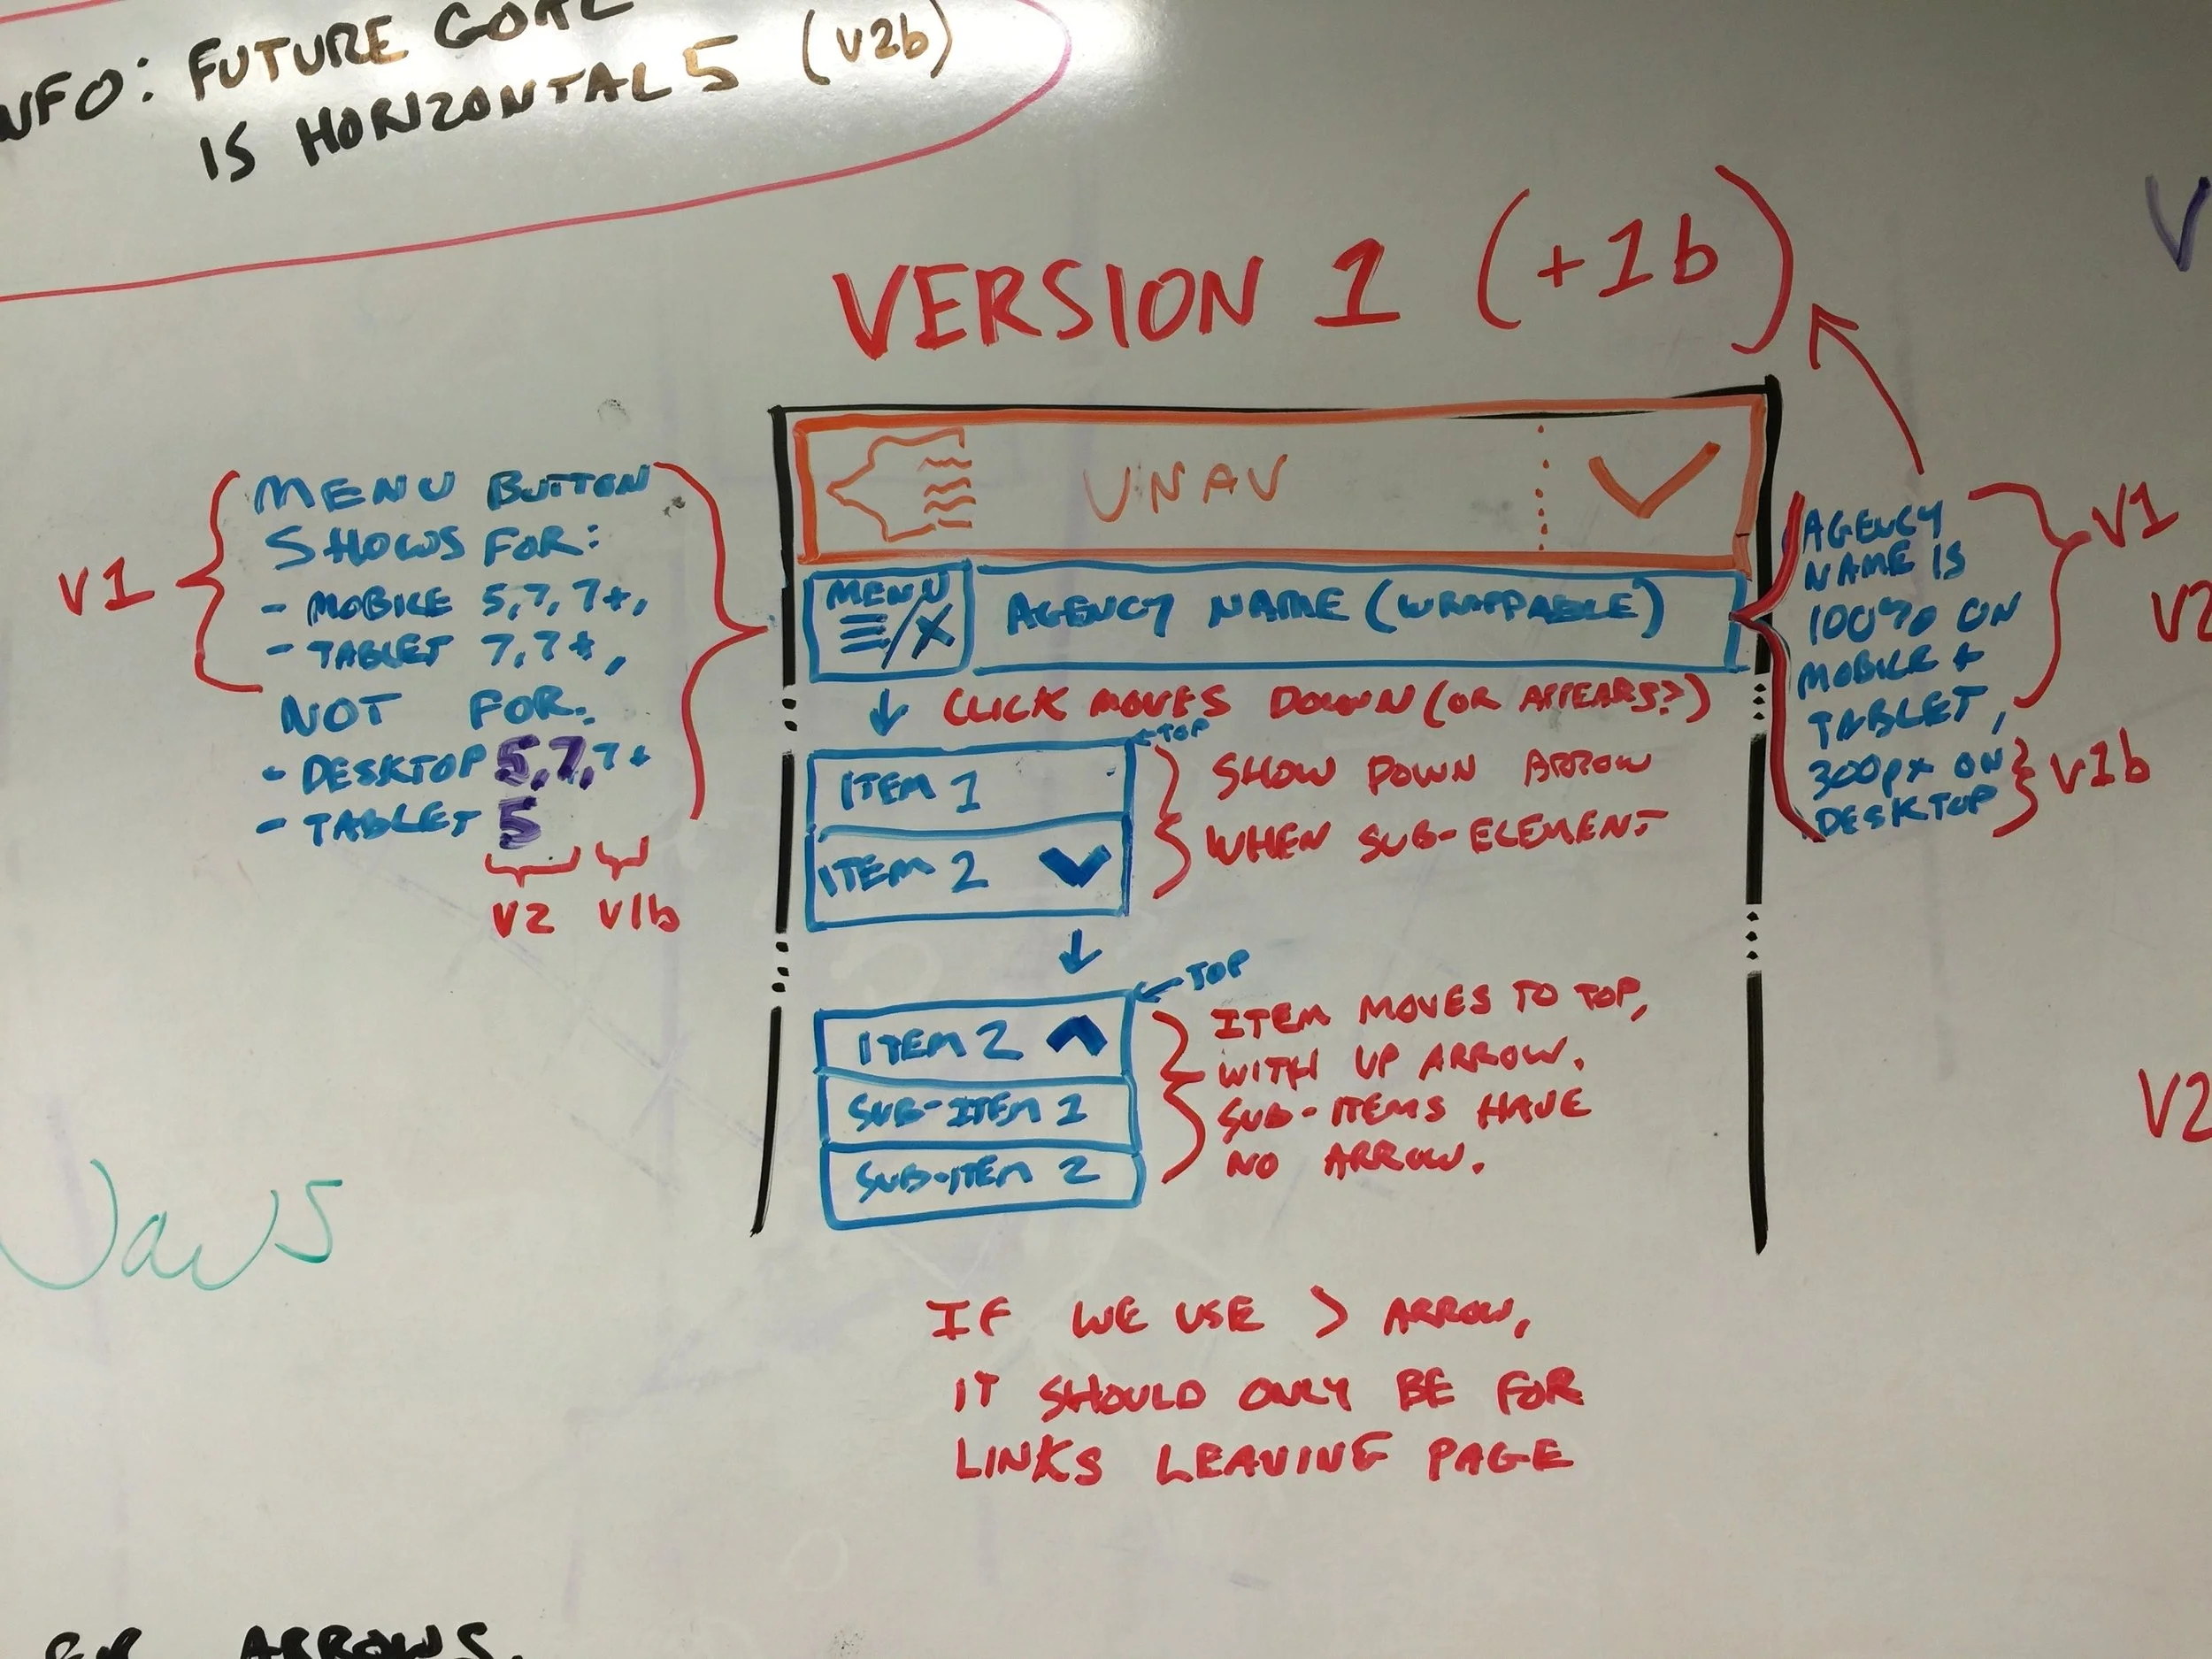 INFO: FUTURE GOAL
IS HORIZONTAL 5 (V2b)
VERSION 1 (+1b)
UNAV
MENU
AGENCY NAME (WRAPPABLE)
CLICK MOVES DOWN (OR APPEARS?)
MENU BUTTON
SHOWS FOR:
- MOBILE 5,7,7+,
- TABLET 7,7+,
NOT FOR:
- DESKTOP 5,7,7+
- TABLET 5
V1
V2 V1b
TOP
ITEM 1
ITEM 2
SHOW DOWN ARROW
WHEN SUB-ELEMENT
TOP
ITEM 2
SUB-ITEM 1
SUB-ITEM 2
ITEM MOVES TO TOP,
WITH UP ARROW.
SUB-ITEMS HAVE
NO ARROW.
AGENCY
NAME IS
100% ON
MOBILE +
TABLET,
300px ON
DESKTOP
V1
V1b
V
V2
V2
IF WE USE > ARROW,
IT SHOULD ONLY BE FOR
LINKS LEAVING PAGE
ARROWS.